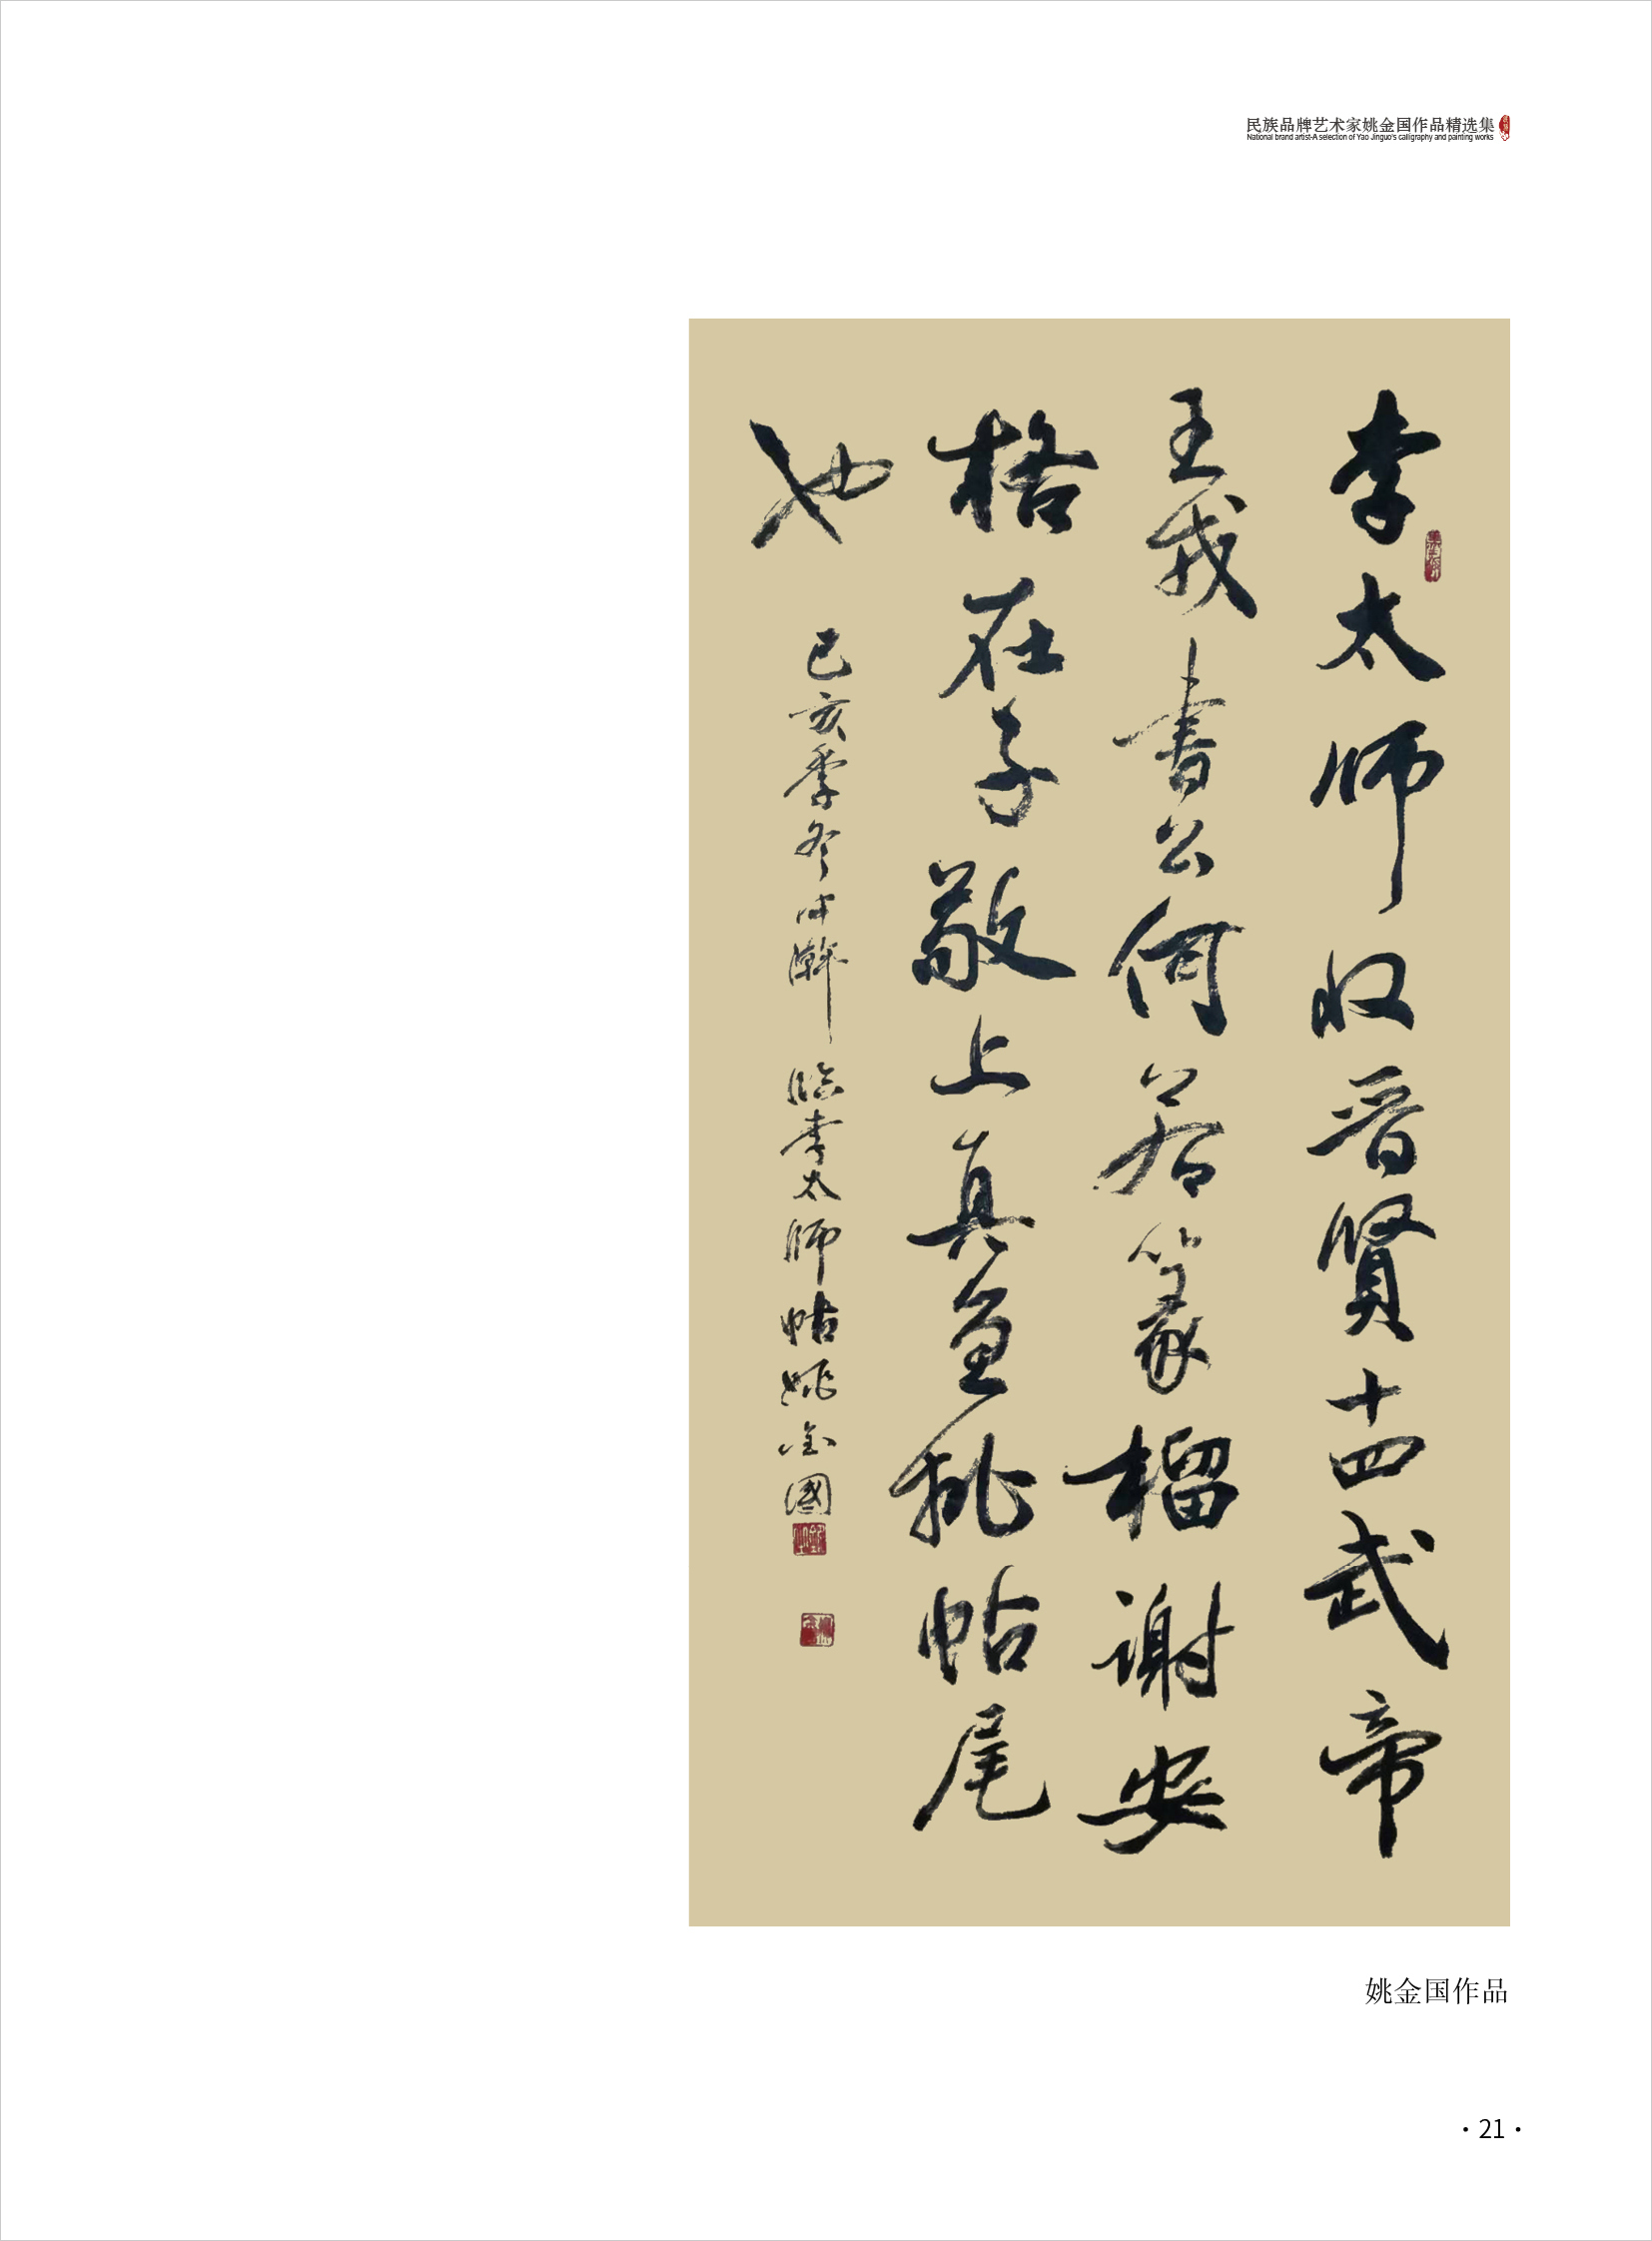 民族品牌艺术家姚金国作品精选集
National brand artist-A selection of Yao Jinguo's calligraphy and painting works
李太师收晋贤十四武帝
王戎书公何若篆榴谢安
格在子敬上真宜批帖尾
也
己亥季冬中澣临李太师帖姚金國
姚金国作品
·21·